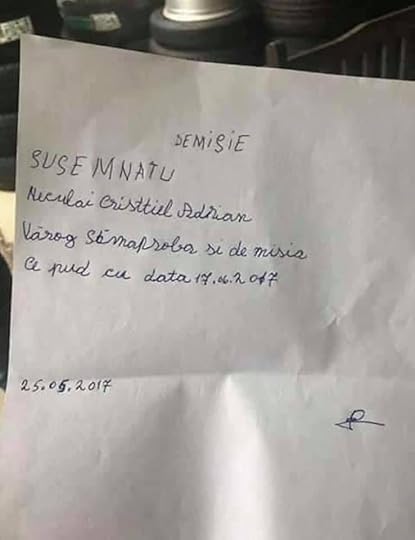 DEMISIE
SUSEMNATU
Neculai Cristtiel Adrian
Vărog Sămaproba si de misia
Ce pud cu data 17.06.2017
25.05.2017